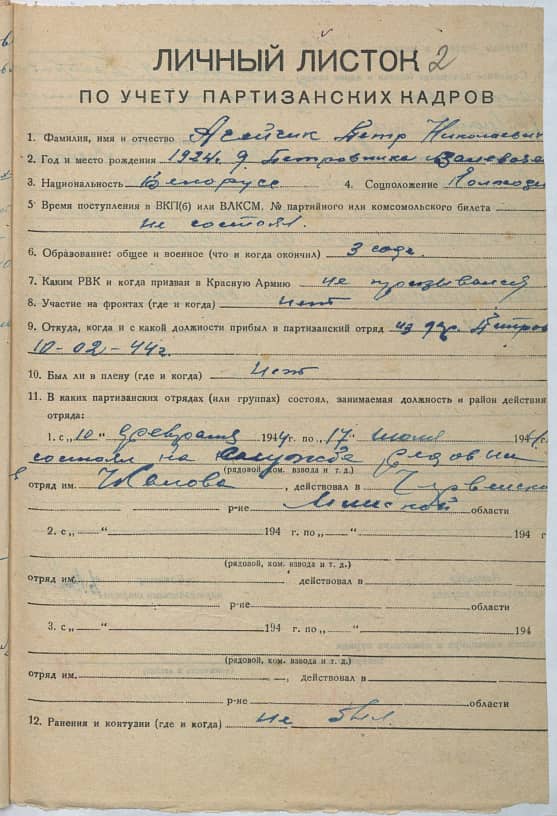 ЛИЧНЫЙ ЛИСТОК 2
ПО УЧЕТУ ПАРТИЗАНСКИХ КАДРОВ
1. Фамилия, имя и отчество Агейчик Петр Николаевич
2. Год и место рождения 1924г. д. Петровинка
3. Национальность Белорусс 4. Соцположение
5 Время поступления в ВКП(б) или ВЛКСМ, № партийного или комсомольского билета
не состоял.
6. Образование: общее и военное (что и когда окончил) 3 года.
7. Каким РВК и когда призван в Красную Армию не призывался
8. Участие на фронтах (где и когда) нет
9. Откуда, когда и с какой должности прибыл в партизанский отряд из дер. Петров
10-02-44г.
10. Был ли в плену (где и когда) нет
11. В каких партизанских отрядах (или группах) состоял, занимаемая должность и район действия
отряда:
1. с „10" февраля 1944г. по „17" июля 194
состоял на службе рядовым
(рядовой, ком. взвода и т. д.)
отряд им. , действовал в Червенско
р-не Минской области
2. с „ " 194 г. по „ " 194 г
(рядовой, ком. взвода и т. д.)
отряд им. , действовал в
р-не области
3. с „ " 194 г. по „ " 194
(рядовой, ком. взвода и т. д.)
отряд им. , действовал в
р-не области
12. Ранения и контузии (где и когда) не был.